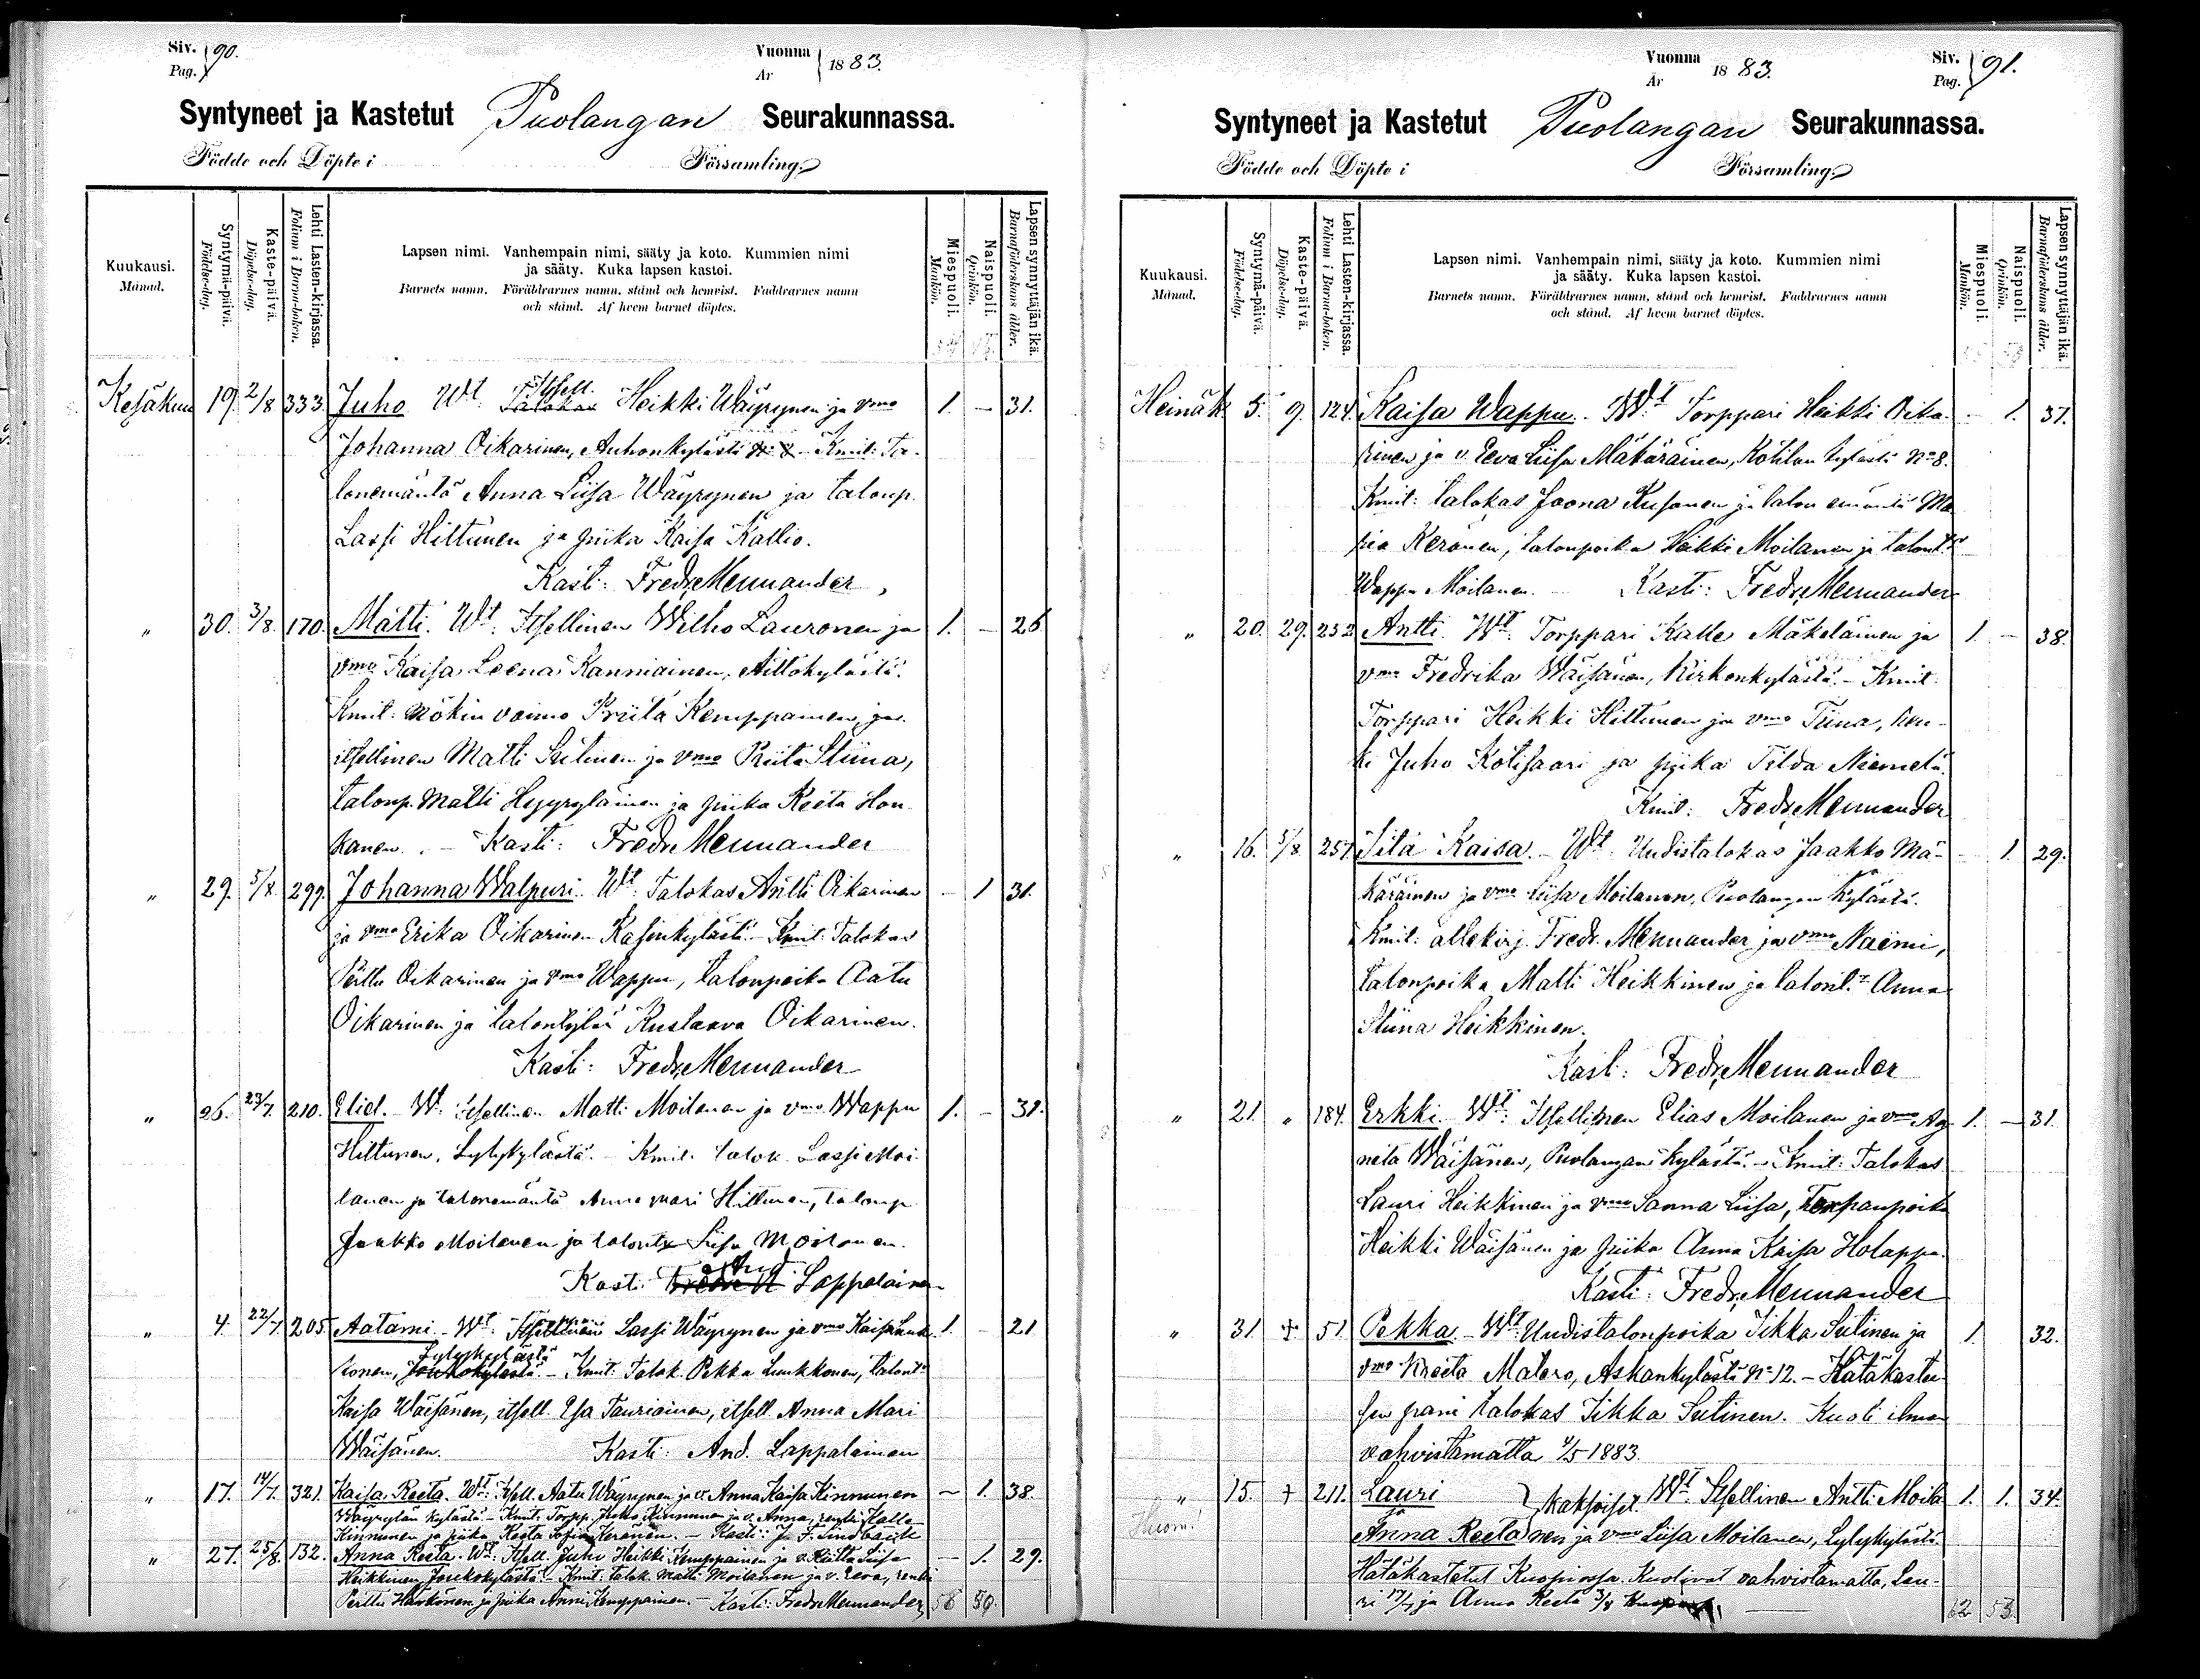 Siv. 90.
Pag.
Vuonna 1883.
År
Syntyneet ja Kastetut Puolangan Seurakunnassa.
Födde och Döpte i Församling.
Kuukausi.
Månad.
Syntymä-päivä.
Födelse-dag.
Kaste-päivä.
Döpelse-dag.
Lehti Lasten-kirjassa.
Folium i Barna-boken.
Lapsen nimi. Vanhempain nimi, sääty ja koto. Kummien nimi
ja sääty. Kuka lapsen kastoi.
Barnets namn. Föräldrarnes namn, stånd och hemvist. Faddrarnes namn
och stånd. Af hvem barnet döptes.
Miespuoli.
Mankön.
Naispuoli.
Qvinkön.
Lapsen synnyttäjän ikä.
Barnaföderskans ålder.
Kesäkuu 19. 2/8 333. Juho Wt. Talokas Itsell. Heikki Wäyrynen ja vmo 1. — 31.
Johanna Oikarinen, Auhonkylästä Kmit: Ta-
lonemäntä Anna Liisa Wäyrynen ja talonp.
Lassi Hiltunen ja piika Kaisa Kallio.
Kasti: Fredr. Mennander
„ 30. 3/8. 170. Matti. Wt. Itsellinen Wilho Lauronen ja 1. — 26
vmo Kaisa Leena Kanniainen, Aittokylästä.
Kmit: Mökin vaimo Priita Kemppainen, ja
itsellinen Matti Sutinen ja vmo Priita Stiina,
talonp. Matti Hyyryläinen ja piika Reeta Hon-
kanen. — Kasti: Fredr. Mennander
„ 29. 5/8. 299. Johanna Walpuri. Wt. Talokas Antti Oikarinen — 1 31.
ja vmo Erika Oikarinen Kasinkylästä. — Kmit: Talokas
Perttu Oikarinen ja vmo Wappu, talonpoika Aatu
Oikarinen ja talontytär Kustaava Oikarinen.
Kasti: Fredr. Mennander
„ 26. 23/7. 210. Eliel. Wt. Itsellinen Matti Moilanen ja vmo Wappu 1. — 31.
Hiltunen, Lylykylästä. — Kmit. talok. Lassi Moi-
lanen ja talonemäntä Anna Mari Hiltunen, talonp.
Jaakko Moilanen ja talontr Liisa Moilanen.
Kast. And. Lappalainen
„ 4. 22/7. 205. Aatami. Wt. Itsellinen Lassi Wäyrynen ja vmo Kaisa Luuk- 1. — 21
konen, Joukokylästä Lylykylästä. — Kmit. Talok. Pekka Luukkonen, talontr
Kaisa Wäisänen, itsell. Esa Tauriainen, itsell. Anna Mari
Wäisänen. Kasti: And. Lappalainen
„ 17. 14/7. 321. Kaisa Reeta. Wt. Itsell. Aatu Wäyrynen ja v. Anna Kaisa Kinnunen — 1. 38.
Wäyrylän kylästä. — Kmit. Torpp. Juho Kinnunen ja v. Anna, renki Kalle
Kinnunen ja piika Reeta Sofia Keränen. — Kasti: J. F. Lindbäck
„ 27. 25/8. 132. Anna Reeta. Wt. Itsell. Juho Heikki Kemppainen ja v. Reetta Liisa — 1. 29.
Heikkinen, Joukokylästä. — Kmit. talok. Matti Moilanen ja v. Eeva, renki
Perttu Härkönen ja piika Anni Kemppainen. — Kasti: Fredr. Mennander 56 50.
Vuonna 1883.
År
Siv. 91.
Pag.
Syntyneet ja Kastetut Puolangan Seurakunnassa.
Födde och Döpte i Församling.
Kuukausi.
Månad.
Syntymä-päivä.
Födelse-dag.
Kaste-päivä.
Döpelse-dag.
Lehti Lasten-kirjassa.
Folium i Barna-boken.
Lapsen nimi. Vanhempain nimi, sääty ja koto. Kummien nimi
ja sääty. Kuka lapsen kastoi.
Barnets namn. Föräldrarnes namn, stånd och hemvist. Faddrarnes namn
och stånd. Af hvem barnet döptes.
Miespuoli.
Mankön.
Naispuoli.
Qvinkön.
Lapsen synnyttäjän ikä.
Barnaföderskans ålder.
Heinäk. 5. 9. 124. Kaisa Wappu. Wt. Torppari Heikki Oika- — 1. 37.
rinen ja v. Eeva Liisa Mäkäräinen, Kotilan kylästä No 8.
Kmit: talokas Joona Kusonen ja talon emäntä Ma-
ria Keränen, talonpoika Heikki Moilanen ja talontr
Wappu Moilanen. Kasti: Fredr. Mennander
„ 20. 29. 232. Antti. Wt. Torppari Kalle Mäkeläinen ja 1. — 38.
vmo Fredrika Wäisänen, Kirkonkylästä. — Kmit.
Torppari Heikki Hiltunen ja vmo Tiina, ren-
ki Juho Kotisaari ja piika Tilda Niemelä.
Kmit: Fredr. Mennander
„ 16. 5/8. 257. Iita Kaisa. — Wt. Uudistalokas Jaakko Mä- — 1. 29.
käräinen ja vmo Liisa Moilanen, Puolangan kylästä.
Kmit: allekirj. Fredr. Mennander ja vmo Naëmi,
talonpoika Matti Heikkinen ja talontr Anna
Stiina Heikkinen.
Kast: Fredr. Mennander
„ 21. „ 184. Erkki. Wt. Itsellinen Elias Moilanen ja vmo Ag- 1. — 31.
neta Wäisänen, Puolangan kylästä. — Kmit: Talokas
Lauri Heikkinen ja vmo Sanna Liisa, torpanpoika
Heikki Wäisänen ja piika Anna Kaisa Holappa.
Kasti: Fredr. Mennander
„ 31. † 51. Pekka. — Wt. Uudistalonpoika Iikka Sutinen ja 1. 32.
vmo Kreeta Matero, Askankylästä No 12. — Hätäkastee-
sen pani talokas Iikka Sutinen. Kuoli ilman
vahvistamatta 1883.
„ 15. † 211. Lauri } kaksoiset. Wt. Itsellinen Antti Moila- 1. 1. 34.
Huom! ja
Anna Reeta nen ja vmo Liisa Moilanen, Lylykylästä.
Hätäkastetut Kuopiossa. Kuolivat vahvistamatta, Lau-
ri 17/7 ja Anna Reeta 3/8
62 53.